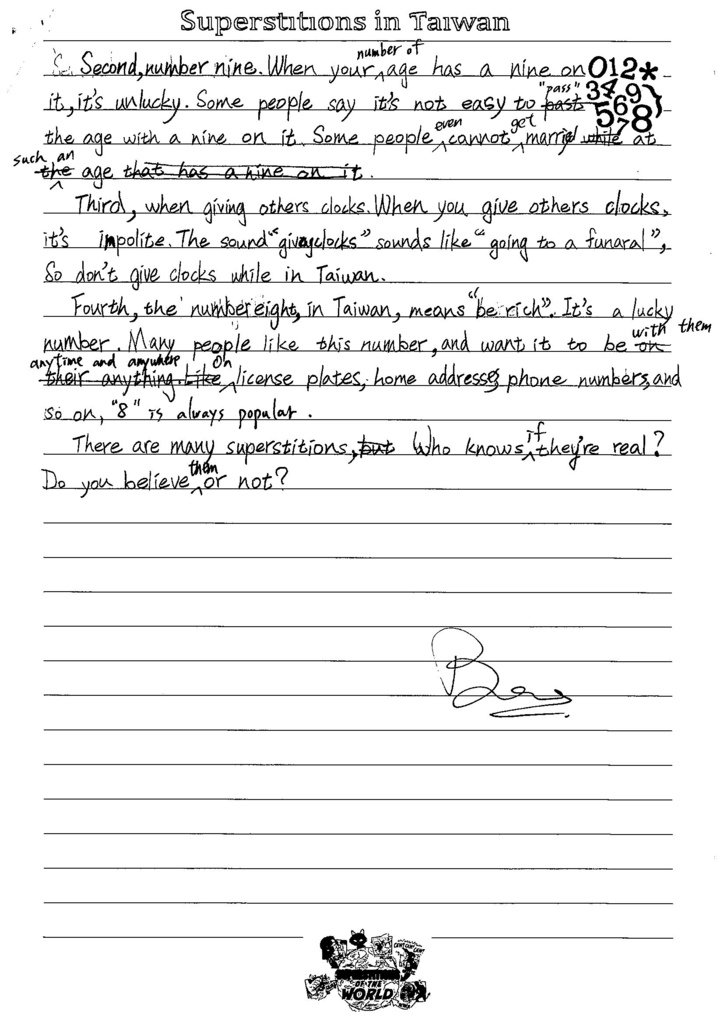 Superstitions in Taiwan
Second, number nine. When your number of age has a nine on 012*
it, it's unlucky. Some people say it's not easy to past "pass" 349}
the age with a nine on it. Some people even cannot get married while at 5678
such an
the age that has a nine on it.
Third, when giving others clocks. When you give others clocks,
it's inpolite. The sound "givingclocks" sounds like "going to a funaral",
So don't give clocks while in Taiwan.
Fourth, the number eight, in Taiwan, means "be rich". It's a lucky
number. Many people like this number, and want it to be on with them
anytime and anywhere
their anything. Like On license plates, home addresses, phone numbers, and
so on, "8" is always popular.
There are many superstitions, but Who knows if they're real?
Do you believe them or not?
SUPERSTITIONS
OF THE
WORLD